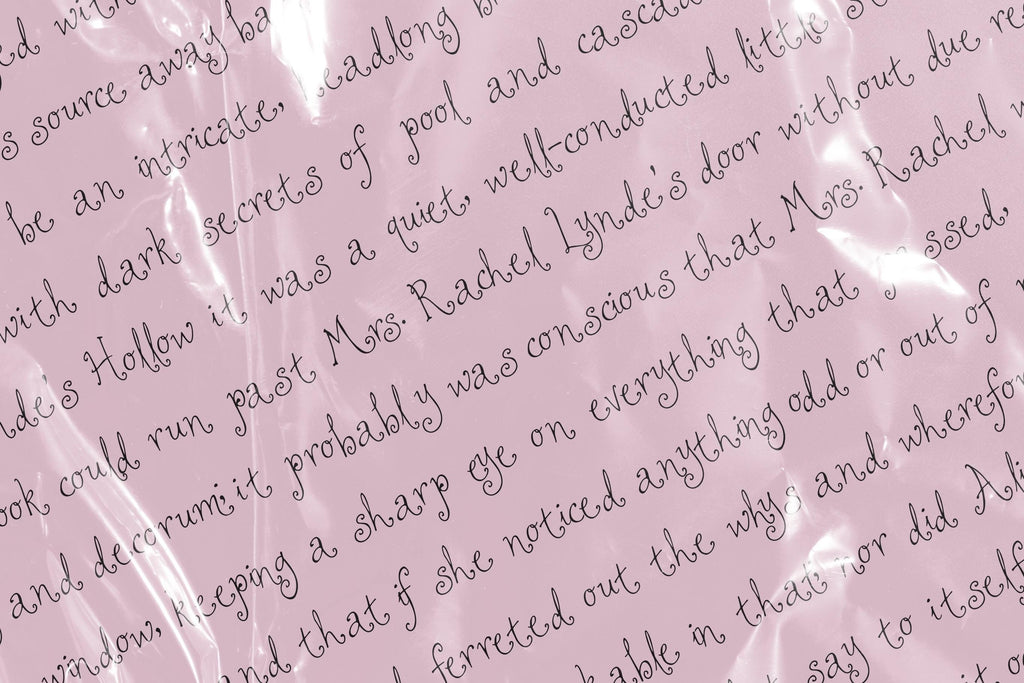 ed with
s source away ba
be an intricate, eadlong b
with dark secrets of pool and casca
nde's Hollow it was a quiet, well-conducted little s
ook could run past Mrs. Rachel Lynde's door without due re
and decorum; it probably was conscious that Mrs. Rachel w
window, keeping a sharp eye on everything that ssed,
nd that if she noticed anything odd or out of
ferreted out the whys and wherefor
kable in that; nor did Ali
say to itself